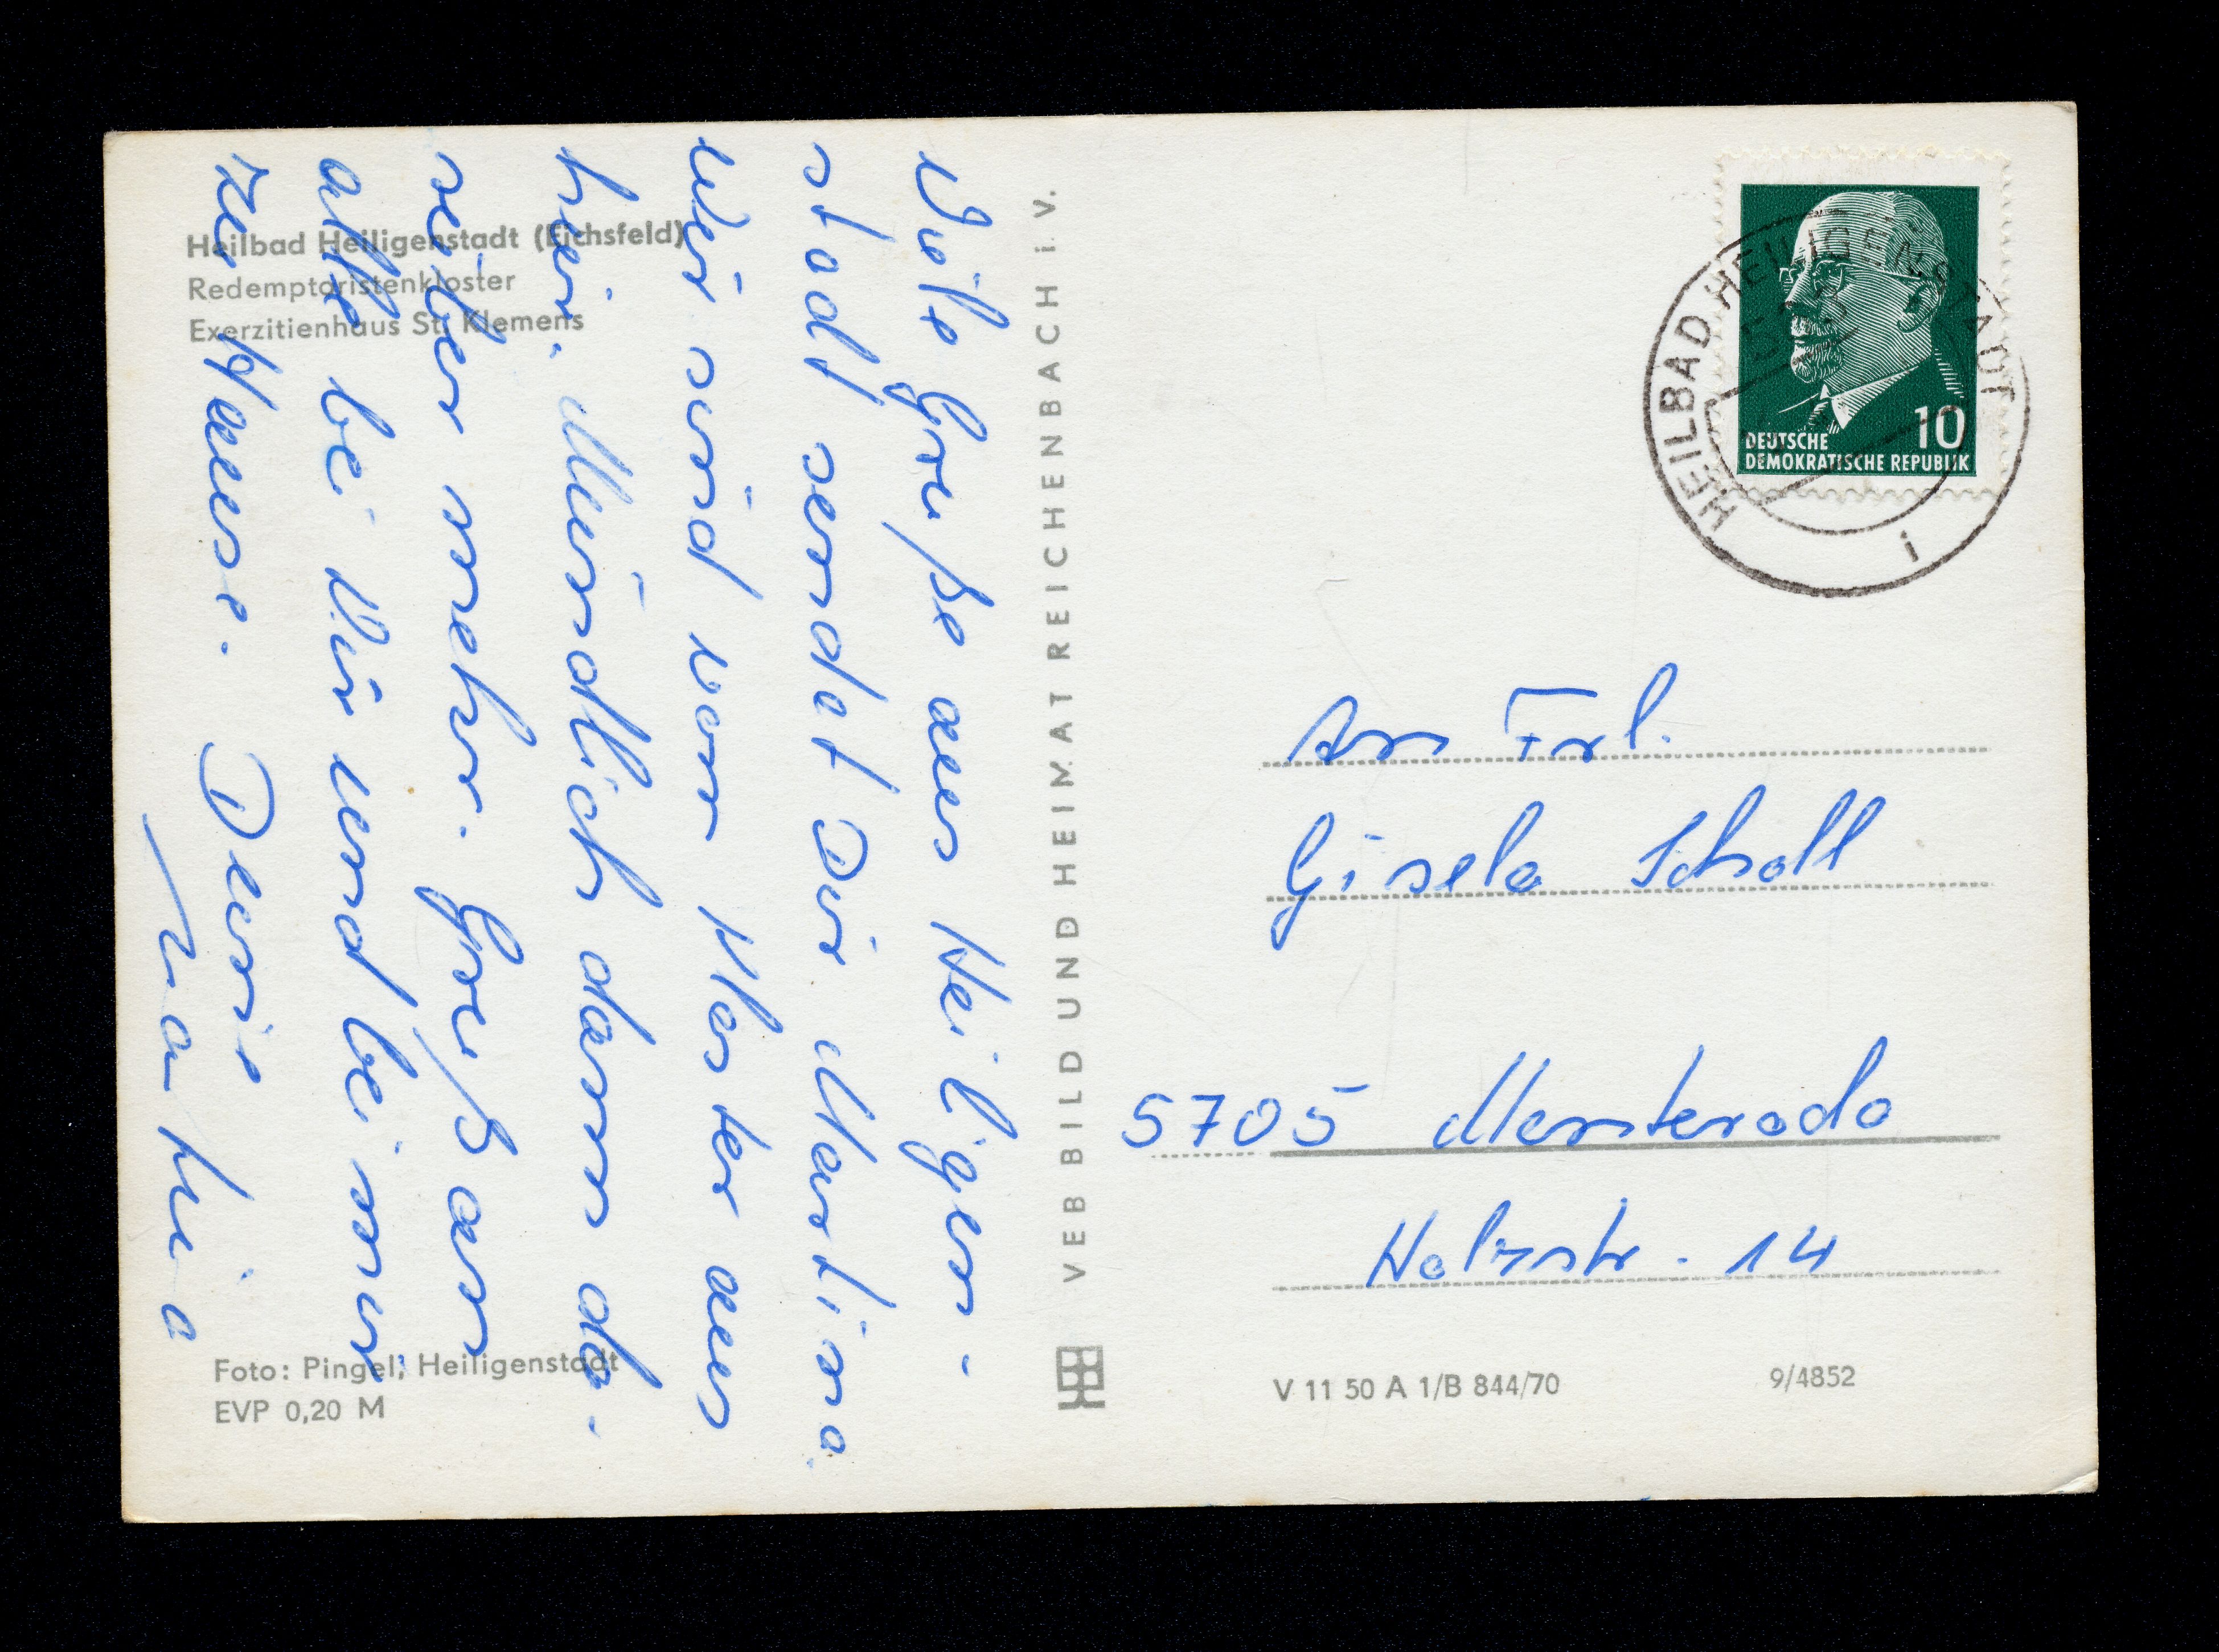 Heilbad Heiligenstadt (Eichsfeld)
Redemptoristenkloster
Exerzitienhaus St. Klemens
Viele Grüße aus Heiligen-
stadt sendet Dir Martina.
Wir sind vom Kloster aus
hier. Mündlich dann da-
rüber mehr. Gruß an
alle bei Dir und bei mir
zu Hause. Deine
Martina
Foto: Pingel, Heiligenstadt
EVP 0,20 M
VEB BILD UND HEIMAT REICHENBACH i. V.
HEILBAD HEILIGENSTADT
i
10
DEUTSCHE
DEMOKRATISCHE REPUBLIK
An Frl.
Gisela Scholl
5705 Menterode
Holzstr. 14
V 11 50 A 1/B 844/70
9/4852